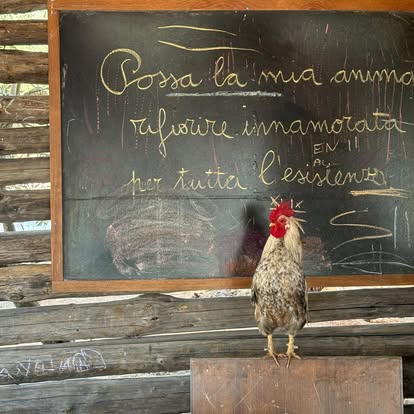 Possa la mia anima
rifiorire innamorata
EN
AL
per tutta l'esistenza